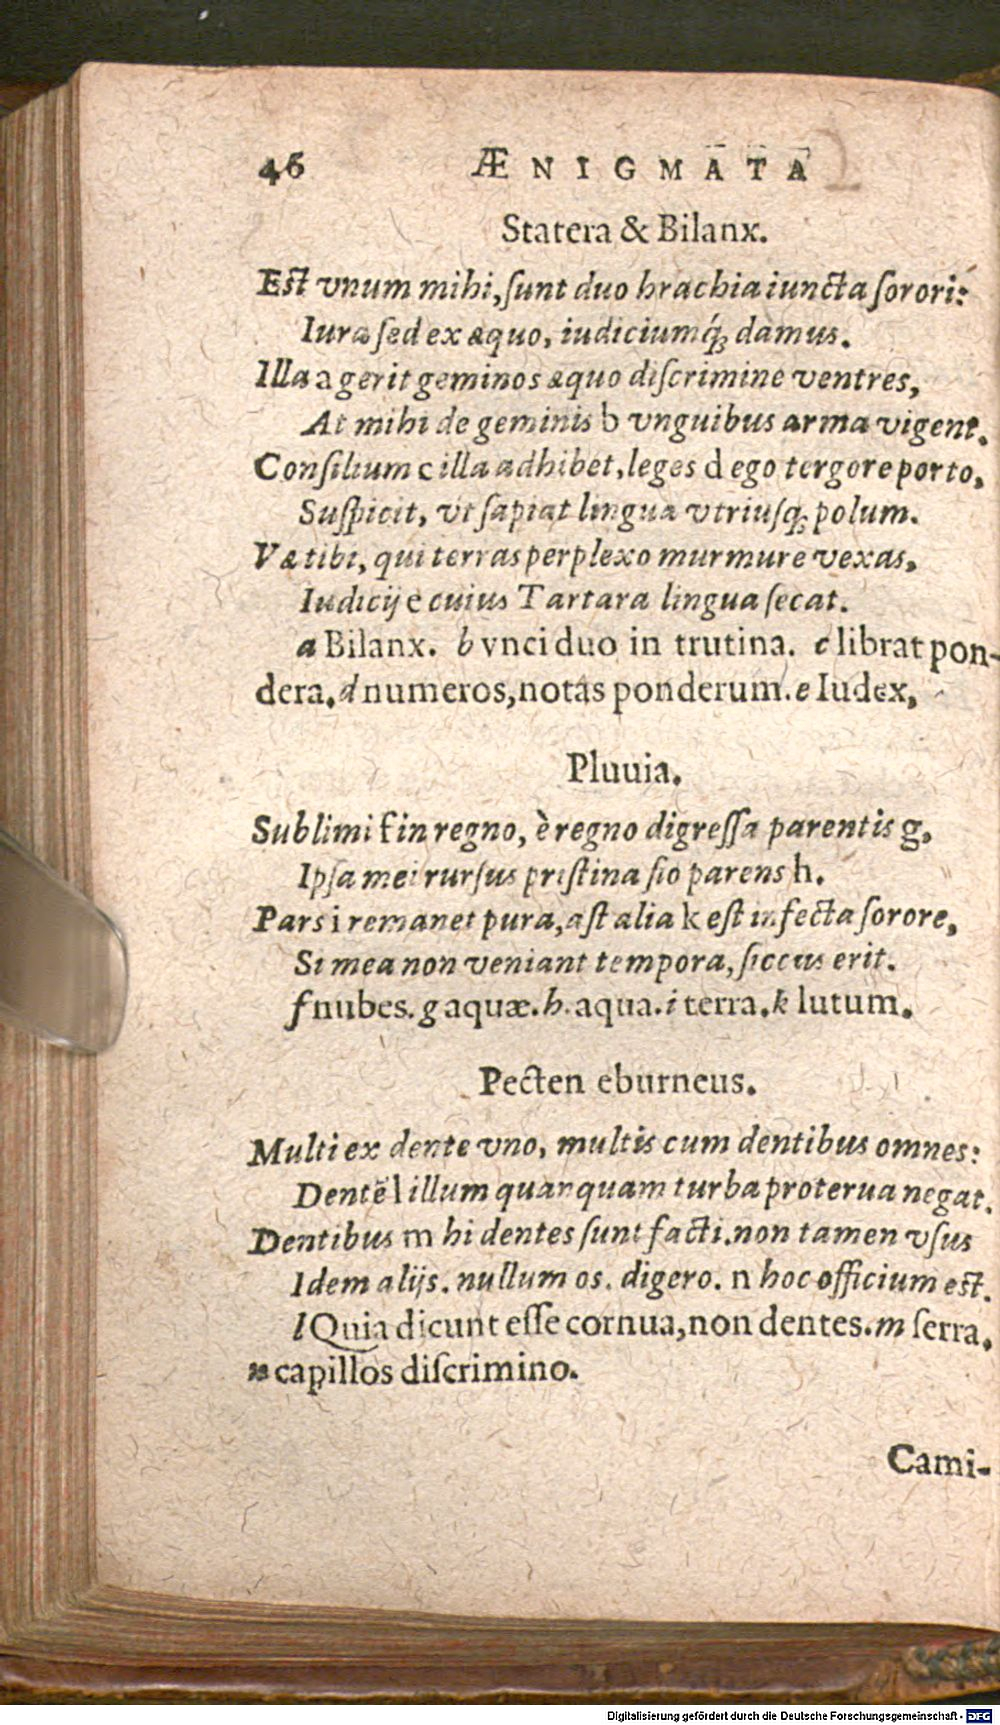 46 ÆNIGMATA
Statera & Bilanx.
Est vnum mihi, ſunt duo brachia iuncta ſorori:
Iura ſed ex æquo, iudiciumq́; damus.
Illa a gerit geminos æquo diſcrimine ventres,
At mihi de geminis b vnguibus arma vigent.
Conſilium c illa adhibet, leges d ego tergore porto,
Suſpicit, vt ſapiat lingua vtriuſq; polum.
Væ tibi, qui terras perplexo murmure vexas,
Iudicij e cuius Tartara lingua ſecat.
a Bilanx. b vnci duo in trutina. c librat pon-
dera. d numeros, notas ponderum. e Iudex,
Pluuia.
Sublimi f in regno, è regno digreſſa parentis g,
Ipſa mei rurſus priſtina fio parens h.
Pars i remanet pura, aſt alia k eſt infecta ſorore,
Si mea non veniant tempora, ſiccus erit.
f nubes. g aquæ. h. aqua. i terra. k lutum.
Pecten eburneus.
Multi ex dente vno, multis cum dentibus omnes:
Dentē l illum quanquam turba proterua negat.
Dentibus m hi dentes ſunt facti. non tamen vſus
Idem alijs. nullum os. digero. n hoc officium eſt.
l Quia dicunt eſſe cornua, non dentes. m ſerra.
n capillos diſcrimino.
Cami-
Digitalisierung gefördert durch die Deutsche Forschungsgemeinschaft - DFG